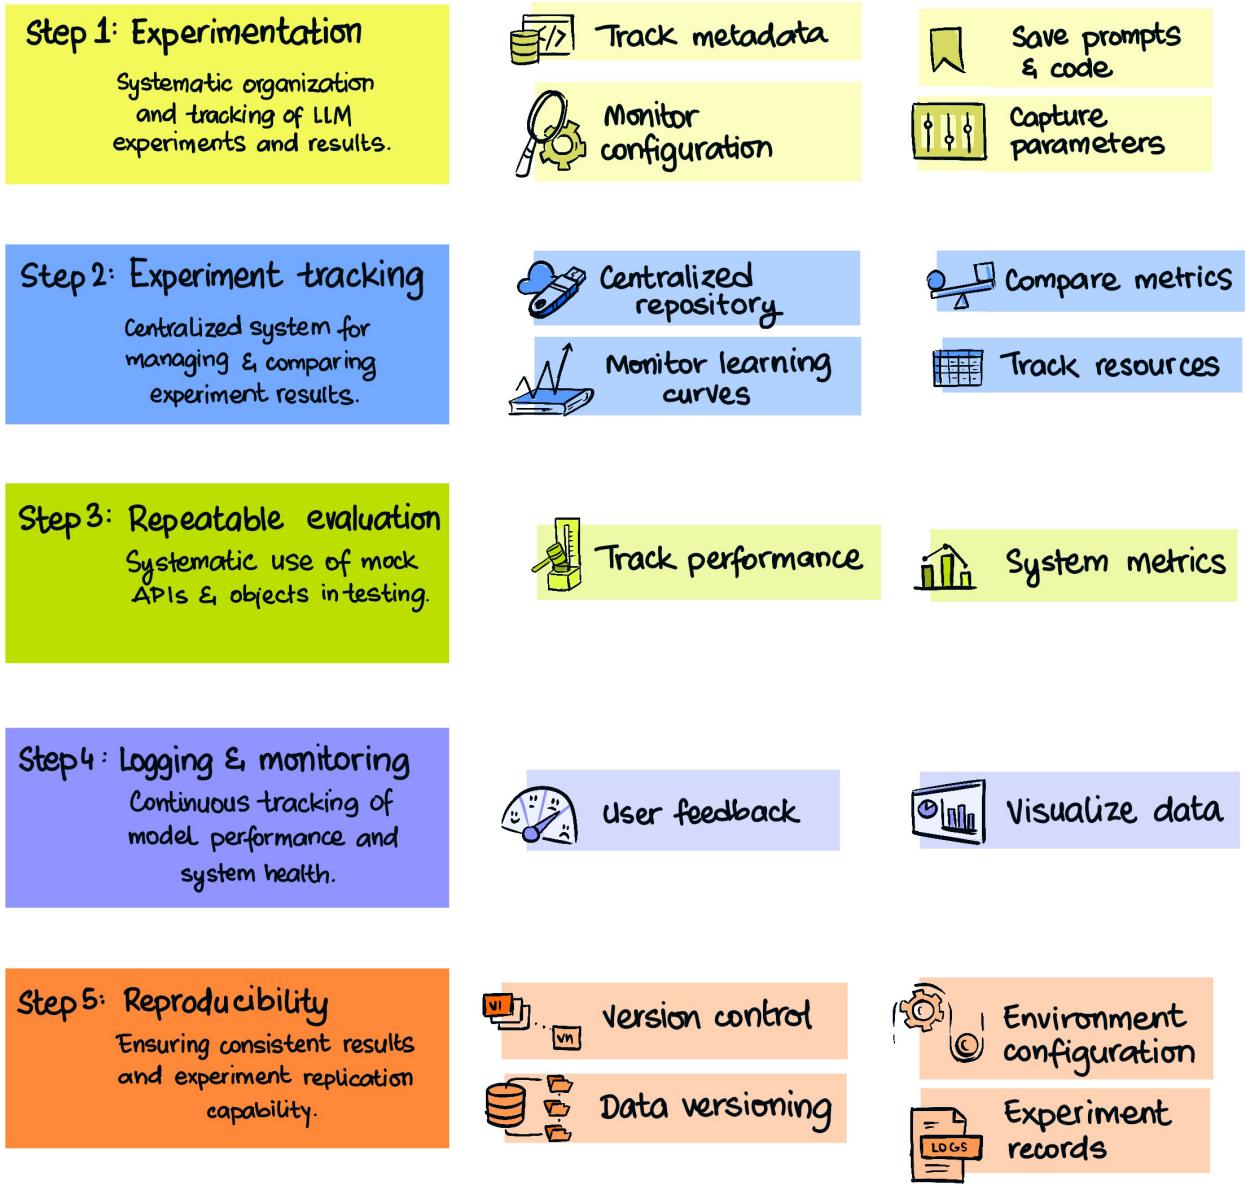 Step 1: Experimentation
Systematic organization
and tracking of LLM
experiments and results.
Track metadata
Save prompts
& code
Monitor
configuration
Capture
parameters
Step 2: Experiment tracking
Centralized system for
managing & comparing
experiment results.
Centralized
repository
Compare metrics
Monitor learning
curves
Track resources
Step 3: Repeatable evaluation
Systematic use of mock
APIs & objects in testing.
Track performance
System metrics
Step 4: Logging & monitoring
Continuous tracking of
model performance and
system health.
User feedback
Visualize data
Step 5: Reproducibility
Ensuring consistent results
and experiment replication
capability.
V1
Vn
Version control
Environment
configuration
Data versioning
LOGS
Experiment
records